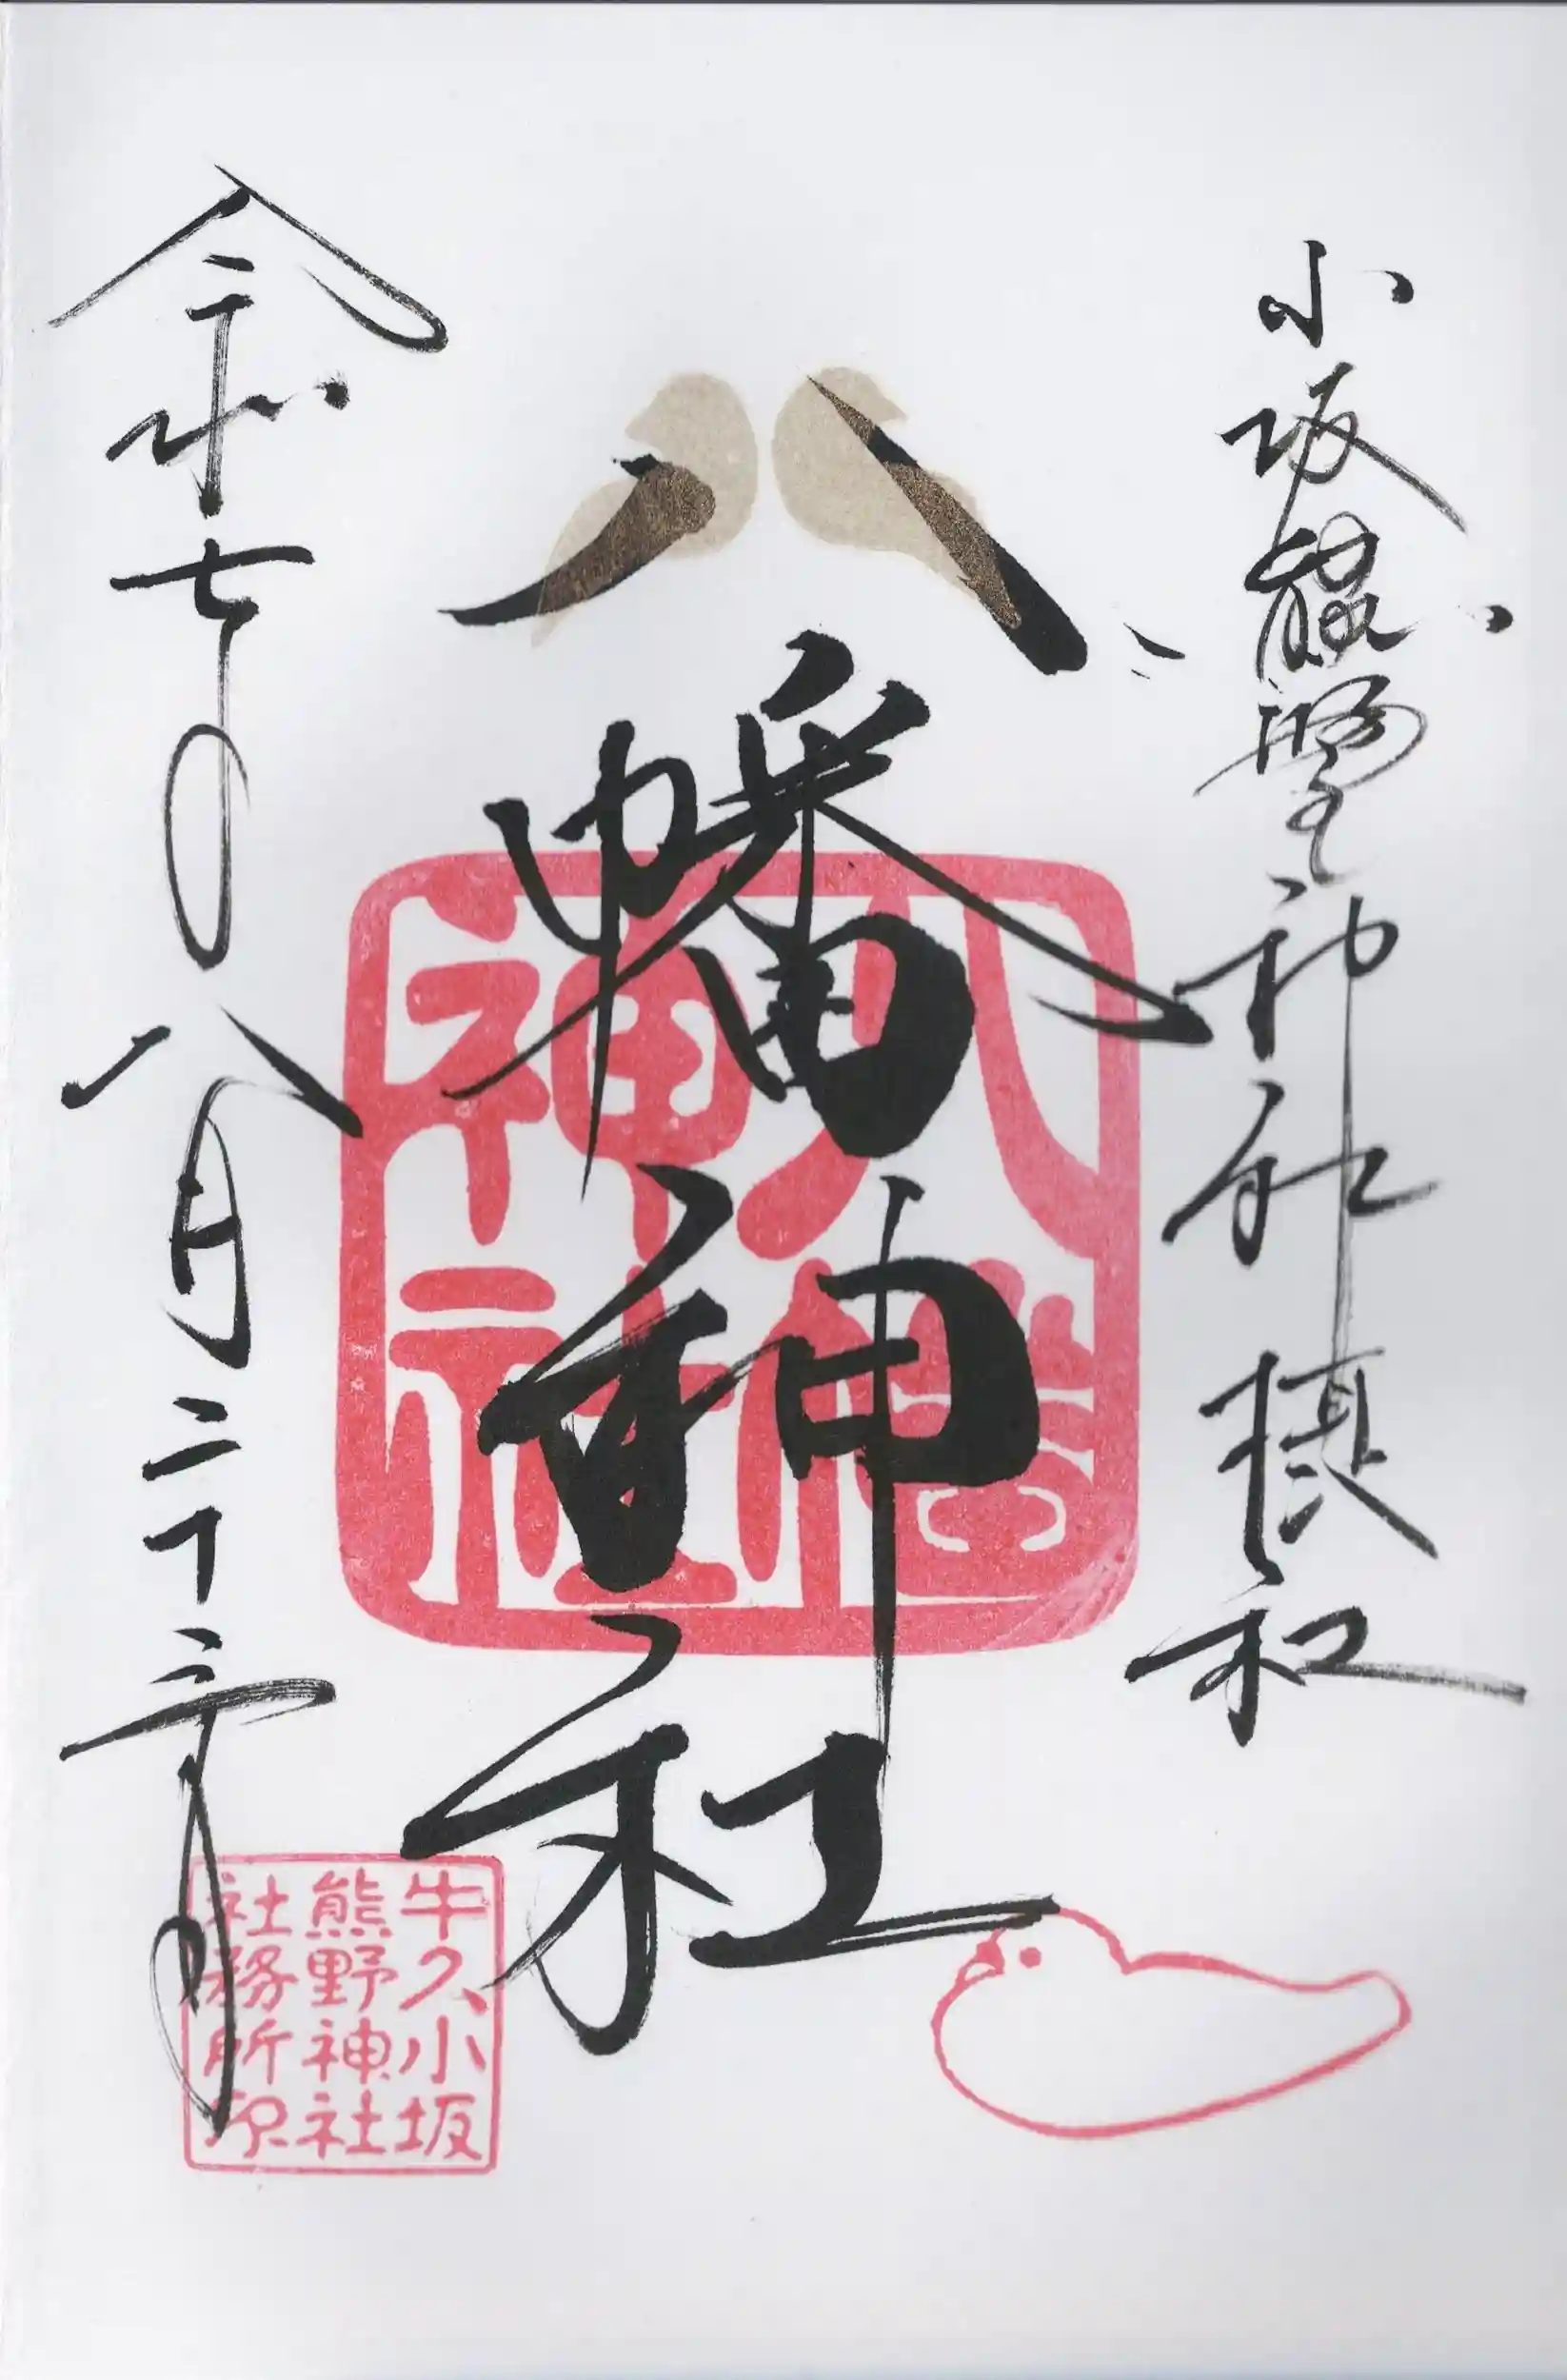 小坂熊野神社 摂社
八幡神社
八幡
神社
令和七年八月二十三日
牛久小坂
熊野神社
社務所印